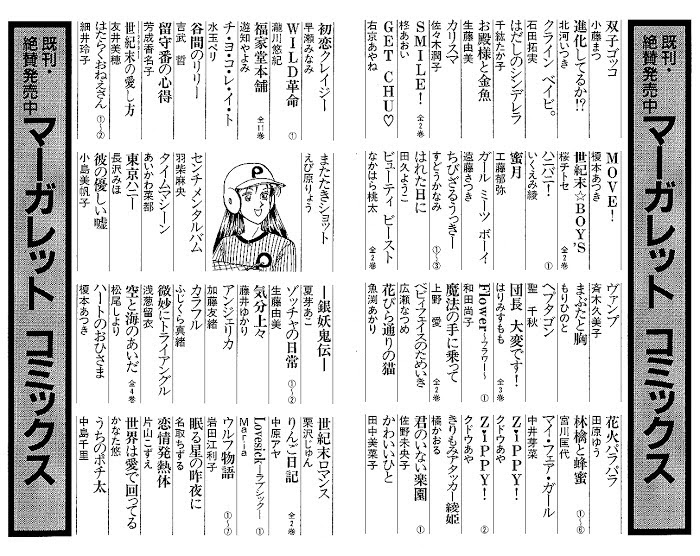 既刊・絶賛発売中
マーガレット コミックス
双子ゴッコ
小藤まつ
進化してるか!?
北河いつき
クライン ベイビ。
石田拓実
はだしのシンデレラ
千紘たか子
お殿様と金魚
生藤由美
カリスマ
佐々木潤子
SMILE! 全2巻
柊あおい
GET CHU♡
右京あやね
MOVE!
榎本あつき
世紀末☆BOY'S 全2巻
桜チーセ
ハニバニー! ①
いくえみ綾
蜜月
工藤郁弥
ガール ミーツ ボーイ
遠藤さつき
ちびざるうっきー ①〜③
すどうかなみ
はれた日に
田久ようこ
ビューティ ビースト 全2巻
なかはら桃太
ヴァンプ
斉木久美子
まぶたと胸
もりひのと
ヘプタゴン
聖 千秋
団長 大変です! 全3巻
はりみすもも
Flower〜フラワー〜 ①
和田尚子
魔法の手に乗って 全3巻
上野 愛
ベビィフェイスのためいき 全2巻
広瀬なつめ
花びら通りの猫
魚渕あかり
花火パラパラ
田原ゆう
林檎と蜂蜜 ①〜⑥
宮川匡代
マイ・フェア・ガール
中井芽菜
ZiPPY!
クドウあや
ZiPPY! ②
クドウあや
きりもみアタッカー綾姫
橘かおる
君のいない楽園 ①
佐野未央子
かわいいひと
田中美菜子
初恋クレイジー
早瀬みなみ
WILD革命 ①
瀧川悠紀
福家堂本舗 全11巻
遊知やよみ
チ・ヨ・コ・レ・イ・ト
水玉ペリ
谷間のリリー
吉武 哲
留守番の心得
芳成香名子
世紀末の愛し方
友井美穂
はたらくおねえさん ①〜②
細井玲子
またたきショット
えび原りょう
センチメンタルバム
羽柴麻央
タイムマシーン
あいかわ菜都
東京ハニー
長沢みほ
彼の優しい嘘
小島美帆子
P
P
―銀妖鬼伝―
夏芽あこ
ゾッチャの日常 ①〜②
生藤由美
気分上々
藤井ゆかり
アンジェリカ
加藤友緒
カラフル
ふじくら真緒
微妙にトライアングル
浅葱留衣
空と海のあいだ 全4巻
松尾しより
ハートのおひさま
榎本あつき
世紀末ロマンス
栗沢じゅん
りんご日記 全2巻
中原アヤ
Lovesick―ラブシック― ①
Maria
ウルフ物語 ①〜⑦
岩田江利子
眠る星の昨夜に
名取ちずる
恋情発熱体
片山こずえ
世界は愛で回ってる
かなた悠
うちのポチ太
中島千里
既刊・絶賛発売中
マーガレット コミックス